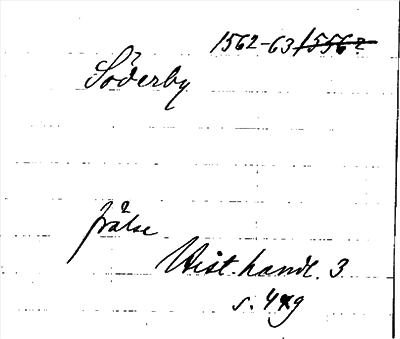 1562-63 1556 2
Söderby
frälse
Hist. handl. 3
s. 479